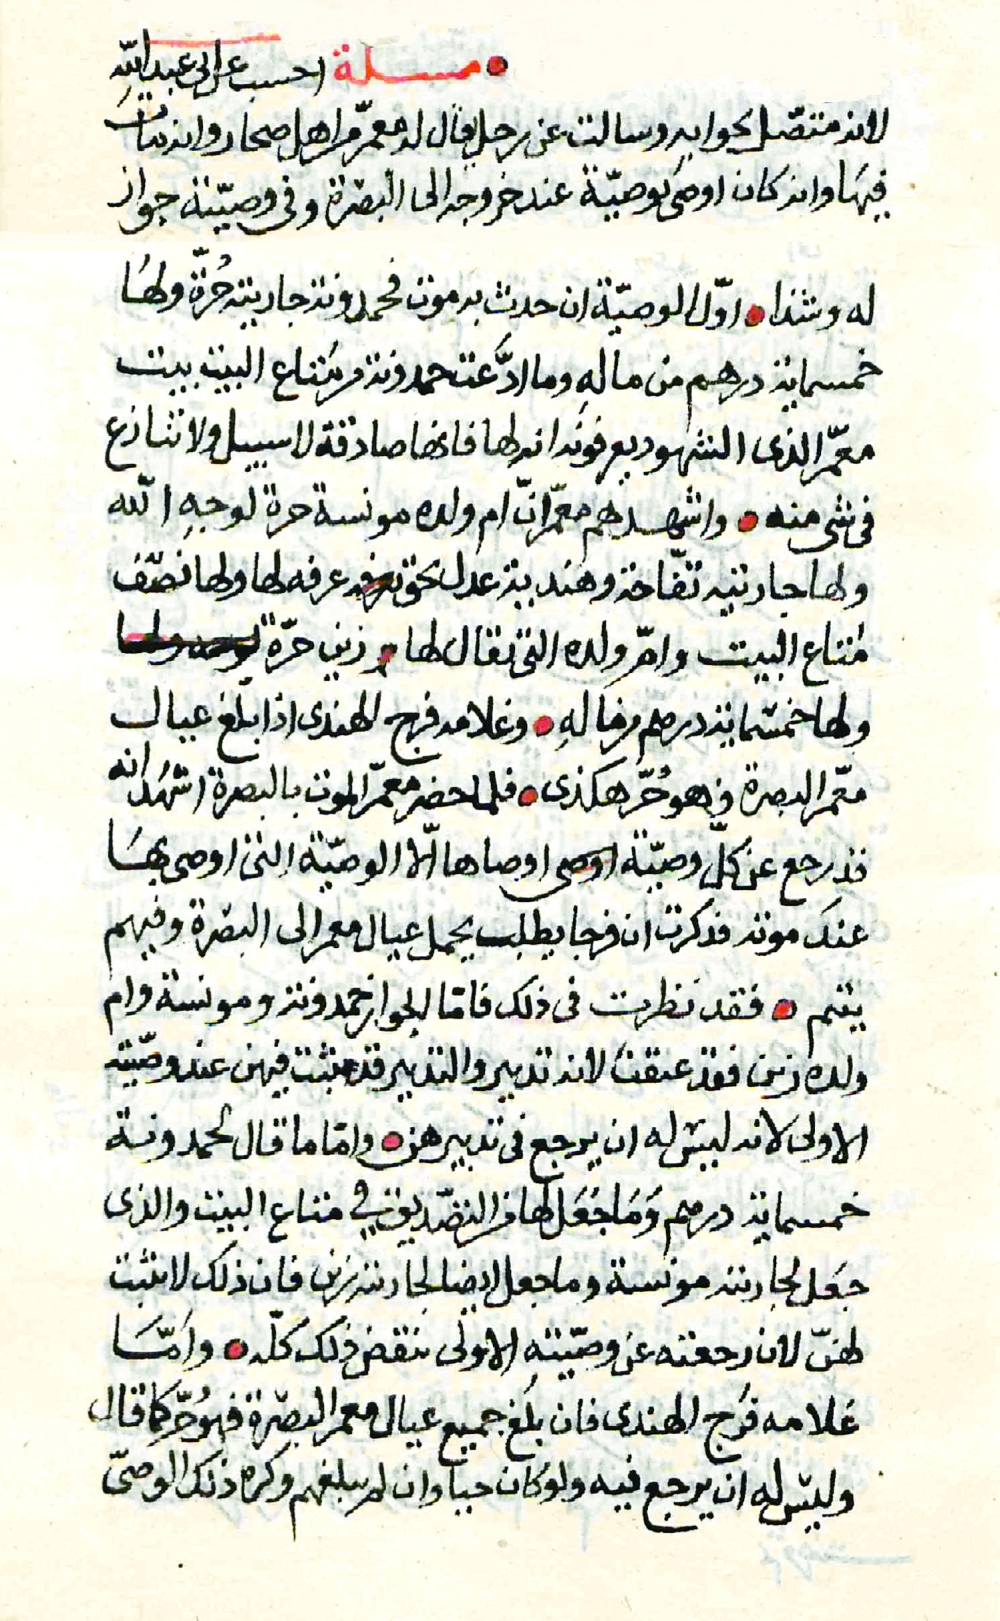 مسلة احسب عن ابي عبدالله
لانه متصل بجوابه وسالت عن رجل يقال له معمر من اهل صحار وانه مات
فيها وانه كان اوصى بوصية عند خروجه الى البصرة وفي وصيته جواز
له وشذا اول الوصية ان حدث به موت فحمدونة جاريته حرة ولها
خمسماية درهم من ماله وما ادعت حمدونة من متاع البيت بيت
معمر الذي الشهود يعرفونه انه لها فانها صادقة لا سبيل ولا تنازع
في شي منه واشهدهم معمر ان ام ولده مونسة حرة لوجه الله
ولها جاريتيه تفاحة وهندية عدل بحق عرفه لها ولها نصف
متاع البيت وام ولده التي يقال لها زين حرة
ولها خمسماية درهم من ماله وغلامه فرج الهندي اذا بلغ عيال
معمر البصرة فهو حر هكذى فلما حضر معمر الموت بالبصرة اشهد انه
قد رجع عن كل وصية اوصاها الا الوصية التي اوصى بها
عند موته فذكرت ان فرجا يطلب يحمل عيال معمر الى البصرة وفيهم
يتيم فقد نظرت في ذلك فاما الجواز حمدونة ومونسة وام
ولده زين فقد عتقن لانه تدبير والتدبير قد مثبت فيهن عند وصيته
الاولى لانه ليس له ان يرجع في تدبيرهن واما ما قال لحمدونة
خمسماية درهم وما جعل لها من التصديق في متاع البيت والذي
جعل لجاريته مونسة وما جعل ايضا لجاريته زين فان ذلك لا يثبت
لهن لان رجعته عن وصيته الاولى ينقض ذلك كله واما
غلامه فرج الهندي فان بلغ جميع عيال معمر البصرة فهو حر كما قال
وليس له ان يرجع فيه ولو كان حيا وان لم يبلغهم وكره ذلك الوصي